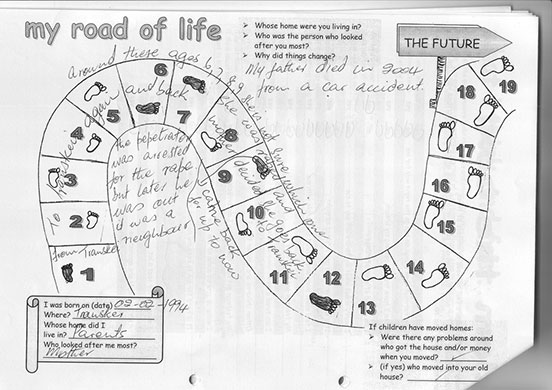 my road of life
➢ Whose home were you living in?
➢ Who was the person who looked
after you most?
➢ Why did things change?
My father died in 2004
from a car accident.
THE FUTURE
around these ages 6, 7, 8
and back
again
Transkei
To
from Transkei
1
2
3
4
5
6
7
8
9
10
11
12
13
14
15
16
17
18
19
The perpetrator
was arrested
for the rape
but later he
was out
it was a
neighbour
she was
mother
decided
she goes back
to Transkei
I came back
for up to now
I was born on (date) 02-02-1994
Where? Transkei
Whose home did I
live in? Parents
Who looked after me most?
Mother
If children have moved homes:
➢ Were there any problems around
who got the house and/or money
when you moved?
➢ (if yes) who moved into your old
house?